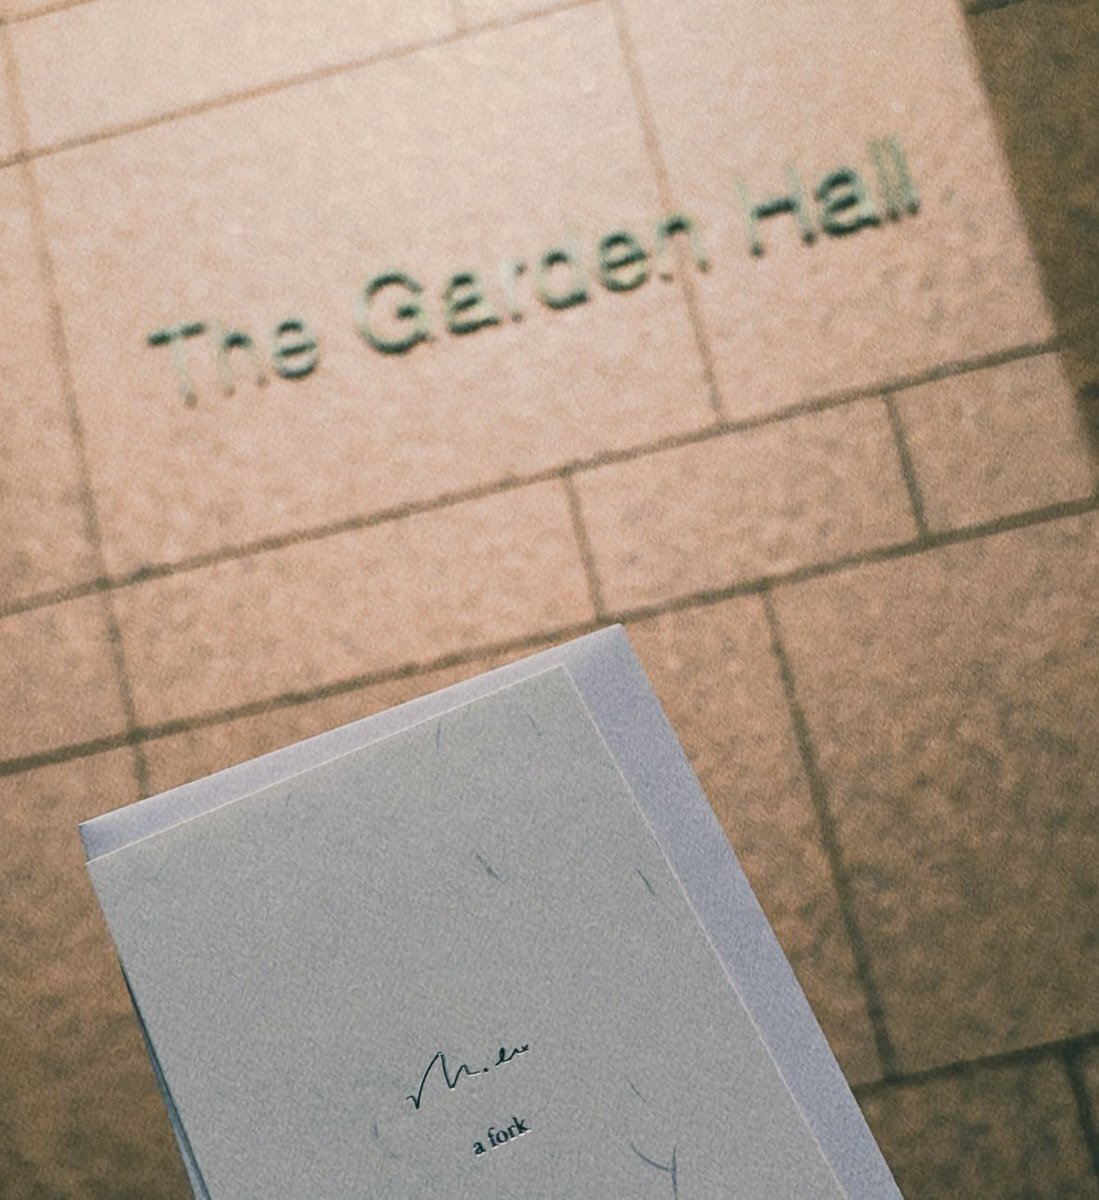 The Garden Hall
a fork